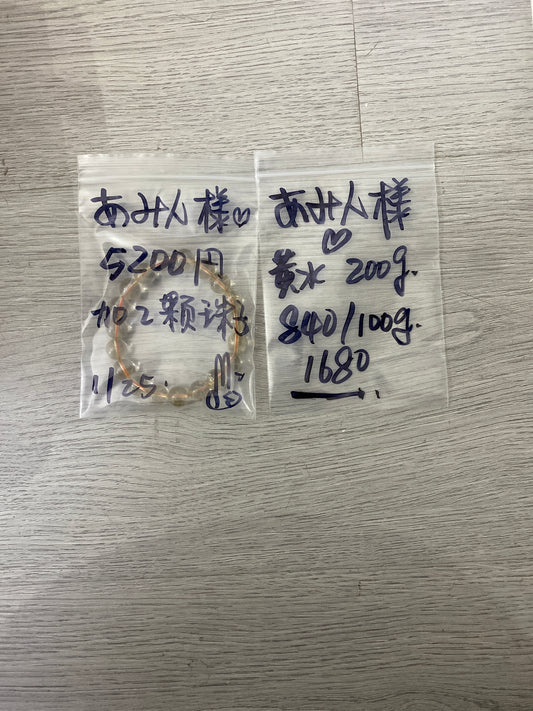 あみ人様♡
5200円
加2颗珠子
11/25.
あみ人様
♡
黄水 200g.
840/100g.
1680